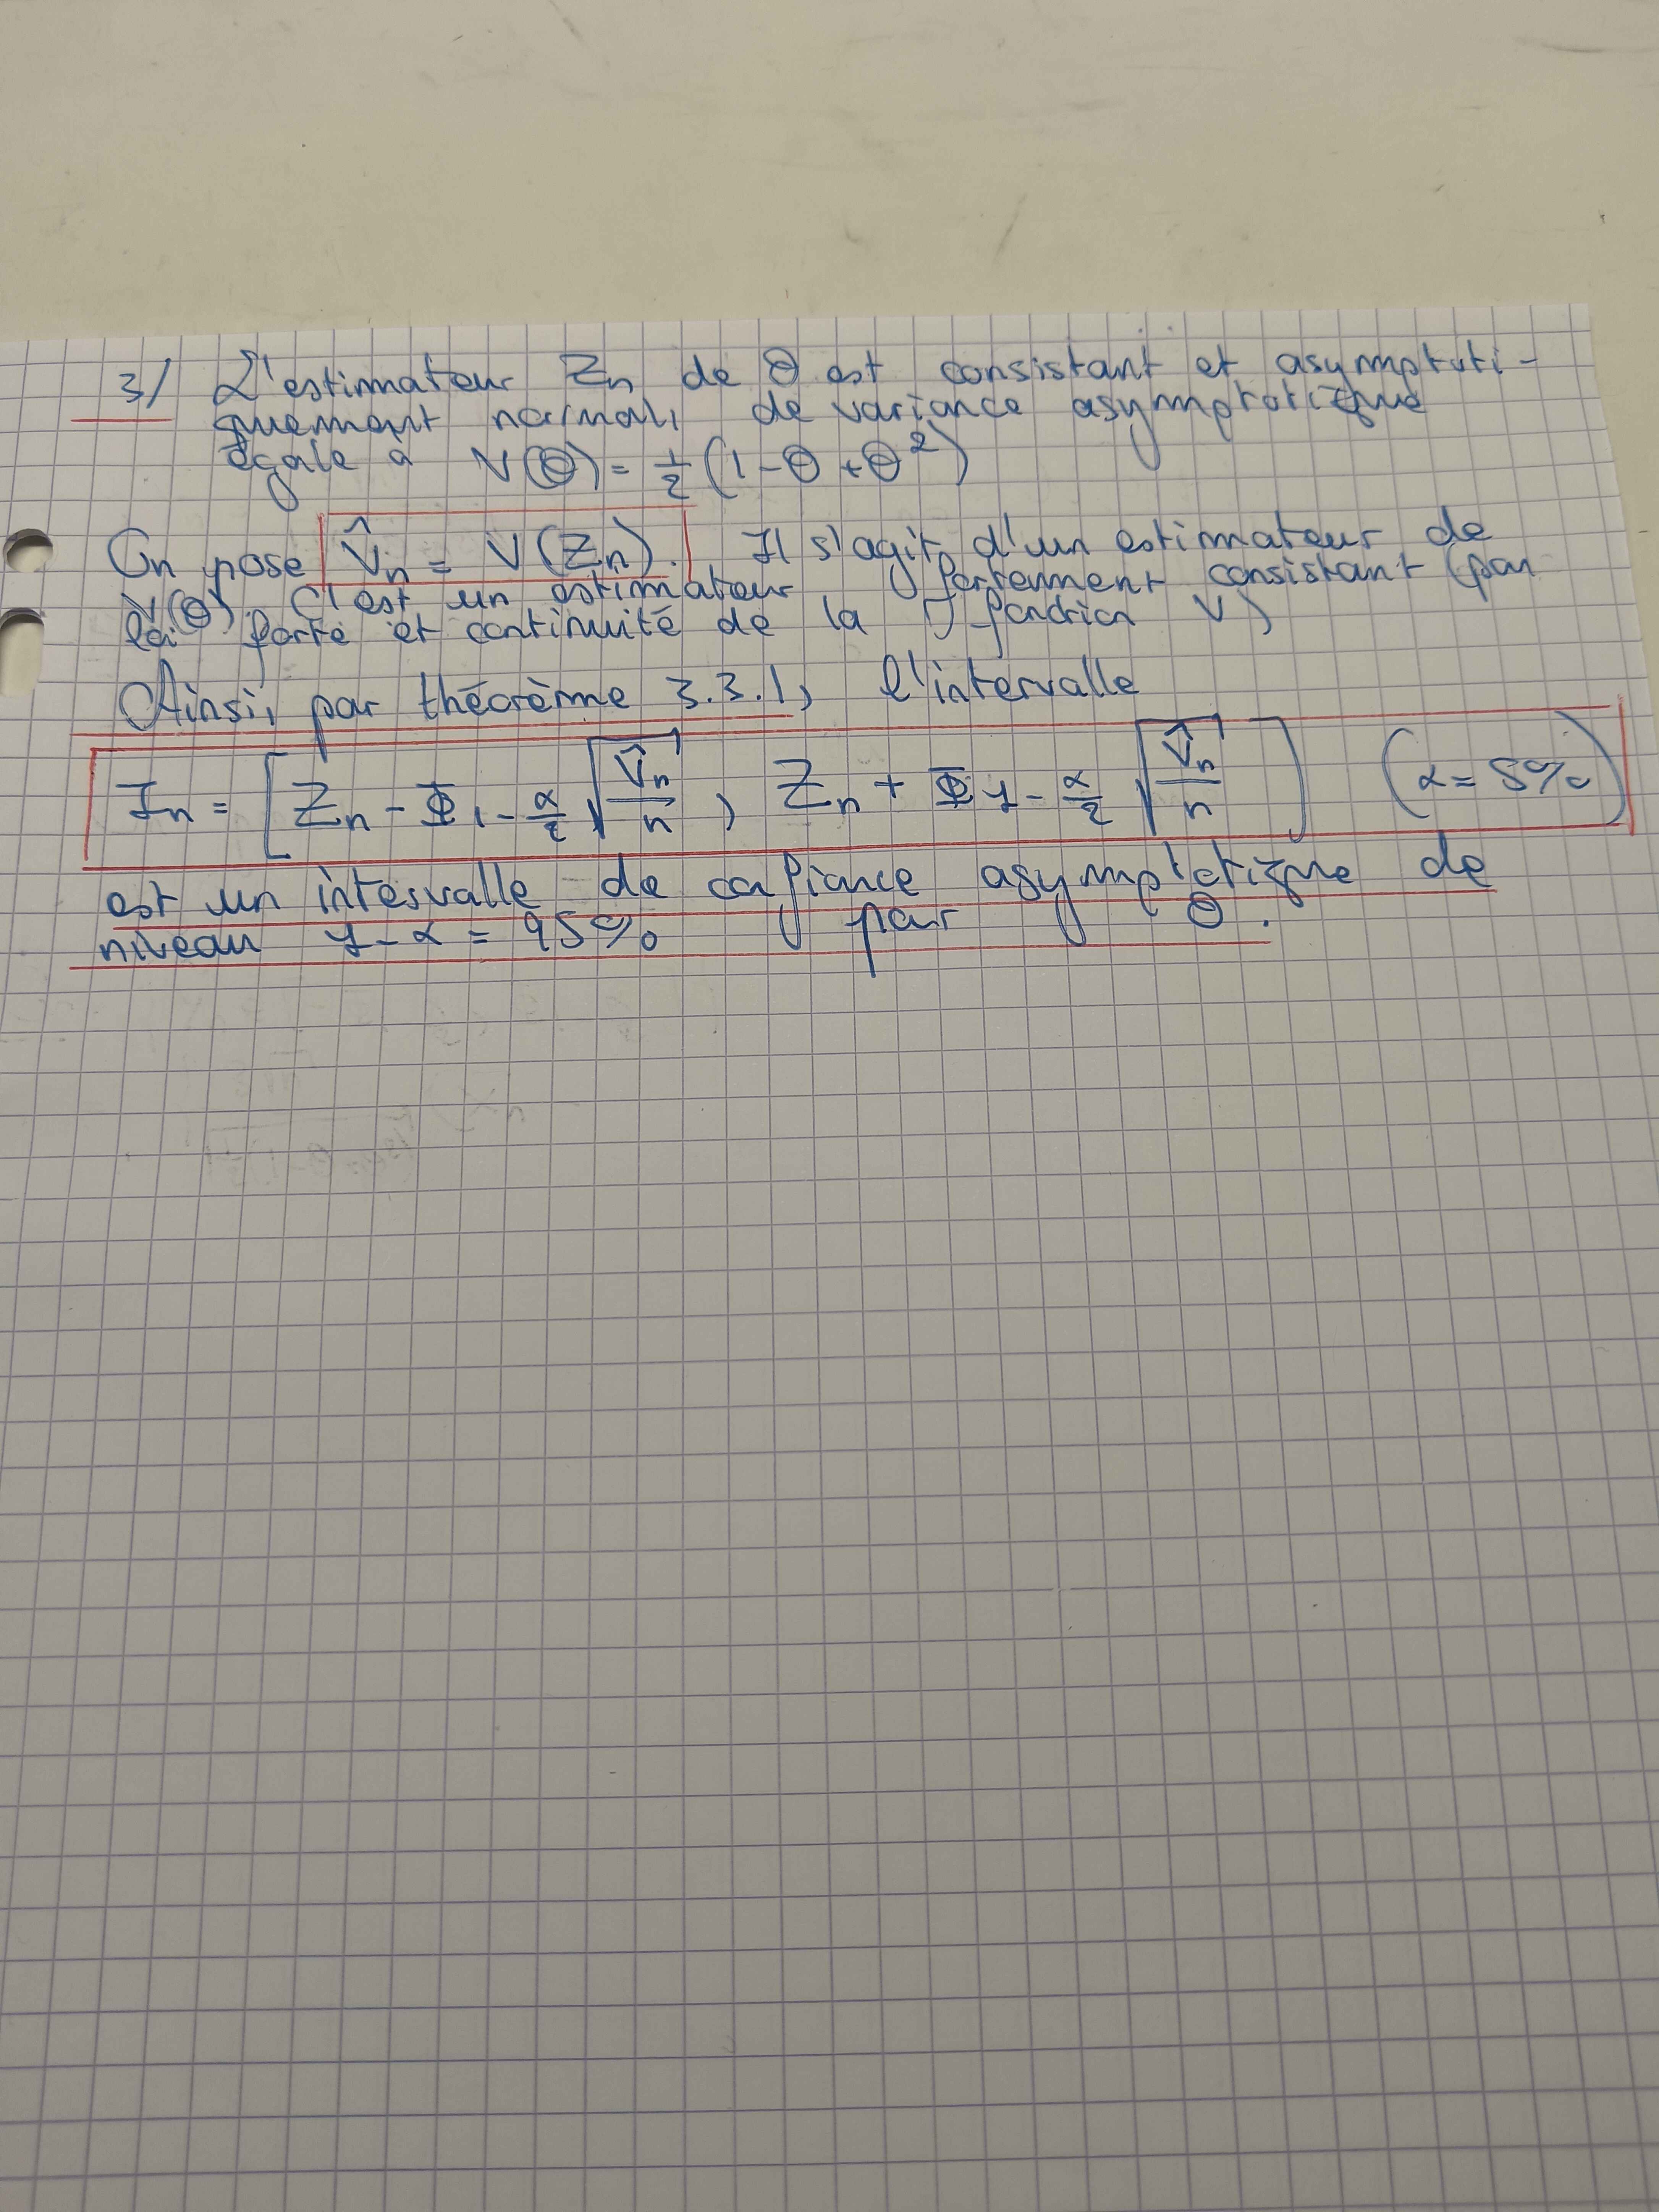 3/ L'estimateur Zn de θ est consistant et asymptoti-
quement normal, de variance asymptotique
égale à V(θ) = 1/2 (1 - θ + θ²)
On pose V̂n = V(Zn). Il s'agit d'un estimateur de
V(θ). C'est un estimateur fortement consistant (par
loi forte et continuité de la fonction V)
Ainsi, par théorème 3.3.1, l'intervalle
In = [ Zn - Φ1-α/2 √(V̂n/n) , Zn + Φ1-α/2 √(V̂n/n) ] (α = 5%)
est un intervalle de confiance asymptotique de
niveau 1-α = 95% pour θ.